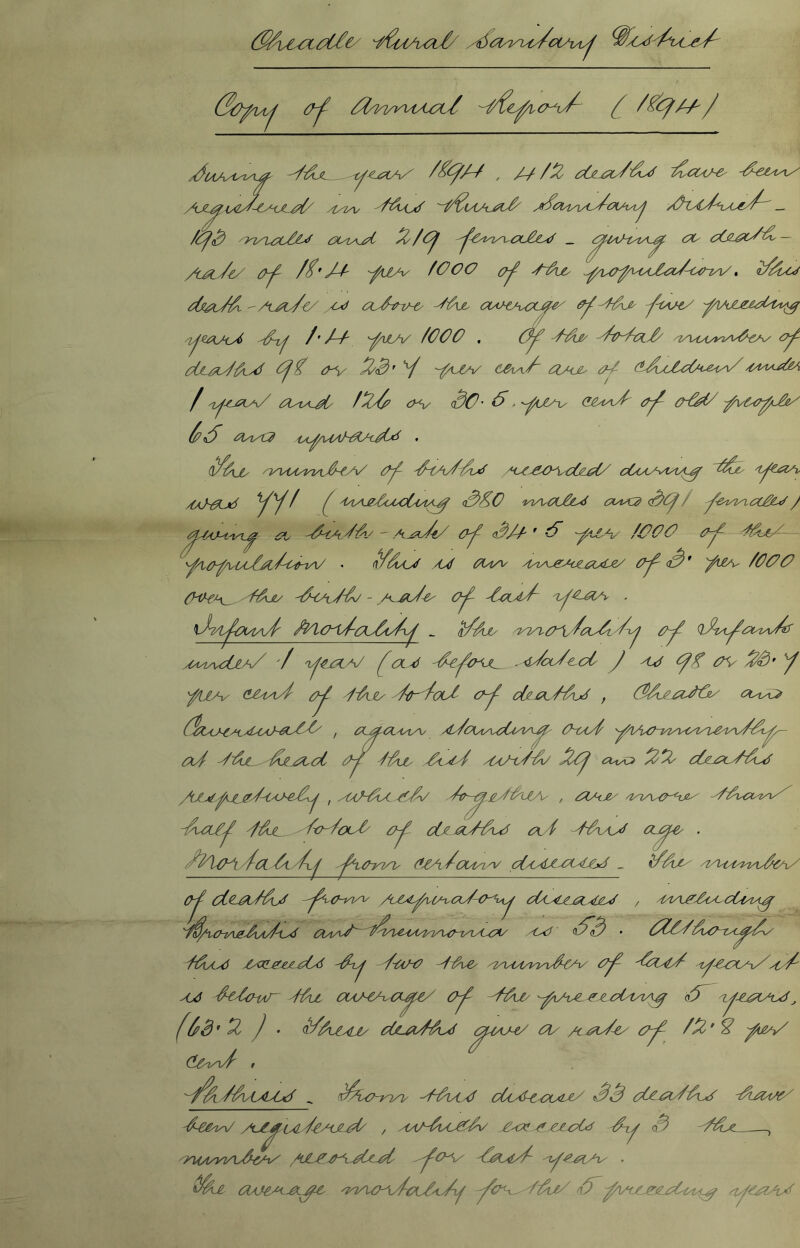 Cheadle Rural Sanitary District
Copy of Annual Report (1894)
During the year 1894, 412 deaths have been
registered in this Rural Sanitary District _
193 males and 219 females _ giving a death-
rate of 18·4 per 1000 of the population. This
death-rate is above the average of the five preceeding
years by 1·4 per 1000. Of the total number of
deaths 98 or 23·7 per cent are of children under
1 year and 126 or 30·5 per cent of old people
65 and upwards.
The number of births recorded during the year
was 771 (including 380 males and 391 females)
giving a birth-rate of 34·5 per 1000 of the
population. This is an increase of 3· per 1000
over the birth-rate of last year.
Infant Mortality _ The mortality of Infants
under 1 year (as before stated) is 98 or 23·7
per cent of the total of deaths, Cheadle and
Caverswall, again standing out prominently
at the head of the list with 29 and 22 deaths
respectively, which together, are more than
half the total of deaths at this age.
Mortality from certain diseases _ The number
of deaths from respiratory diseases, including
Bronchitis and Pneumonia is 53. Although
this exceeds by two the number of last year it
is below the average of the preceeding 5 years,
(63·2). These deaths give a rate of 12·8 per
cent.
Phthisis _ From this disease 33 deaths have
been registered, which exceeds by 3 the
number recorded for last year.
The average mortality for the 5 preceeding years